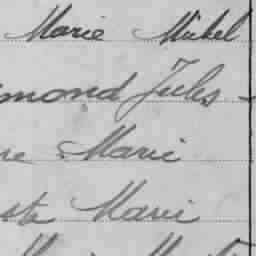 Marie Michel
mond Jules -
re Marie
ste Marie